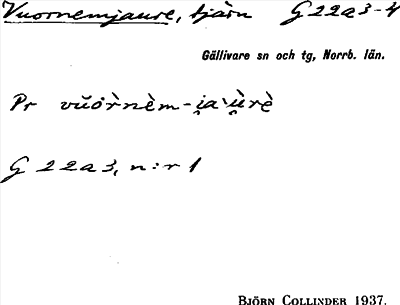 Vuornemjaure, tjärn G 22a3-4
Gällivare sn och tg, Norrb. län.
Pr vŭo̍rnèm-i̯a`u̯rè
G 22a3, n:r 1
BJÖRN COLLINDER 1937.